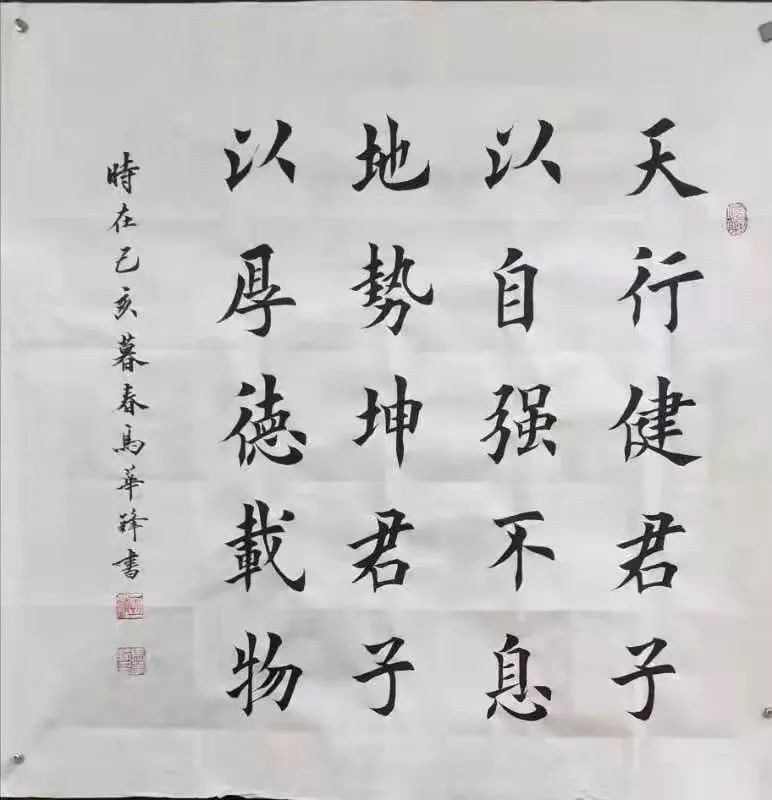 天行健君子
以自强不息
地势坤君子
以厚德載物
時在己亥暮春馬華鋒書